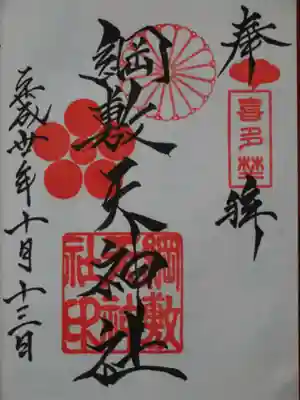 奉拝
喜多埜
綱敷天神社
綱敷天神社印
平成廿年十月十三日